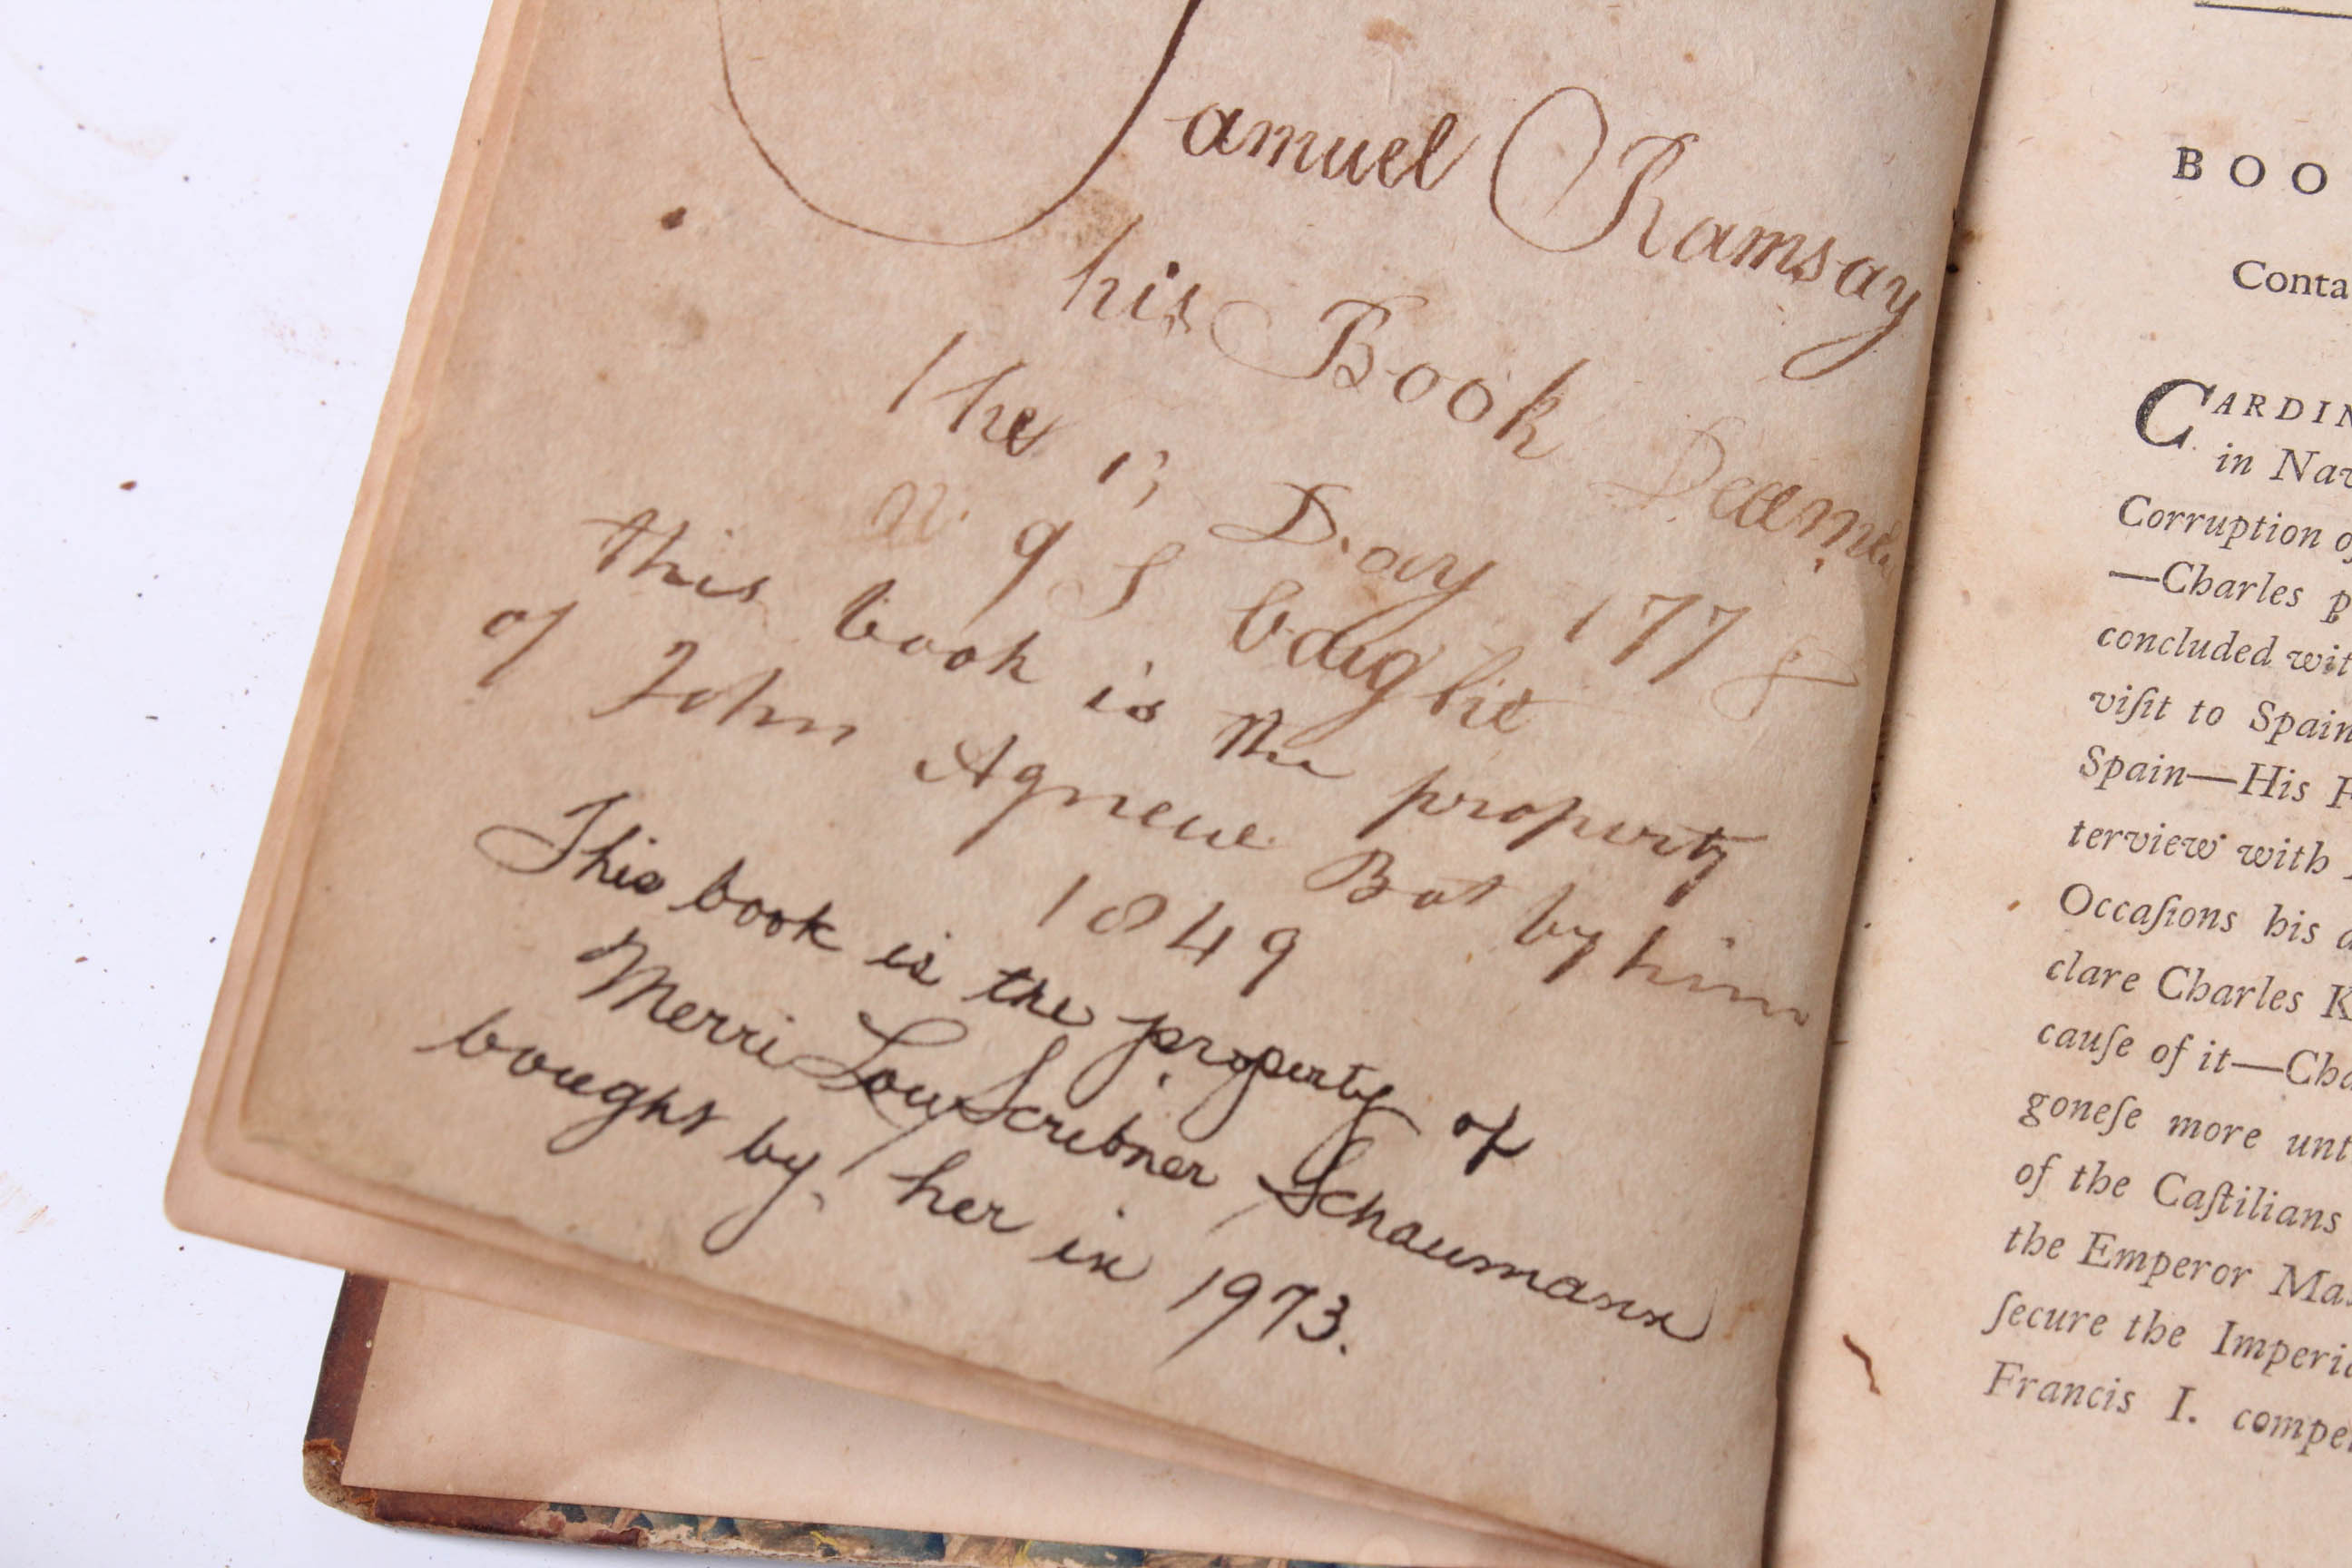 Samuel Ramsay
his Book
the Day 177
this book is the property
of John Agnew Bot by him
1849
This book is the property of
Merri Lou Scribner Schaumann
bought by her in 1973.
BOO
Conta
CARDIN
in Nav
Corruption of
—Charles p
concluded wit
viſit to Spain
Spain—His
terview with
Occaſions his a
clare Charles K
cauſe of it—Cha
goneſe more unt
of the Caſtilians
the Emperor Ma
ſecure the Imperi
Francis I. compe